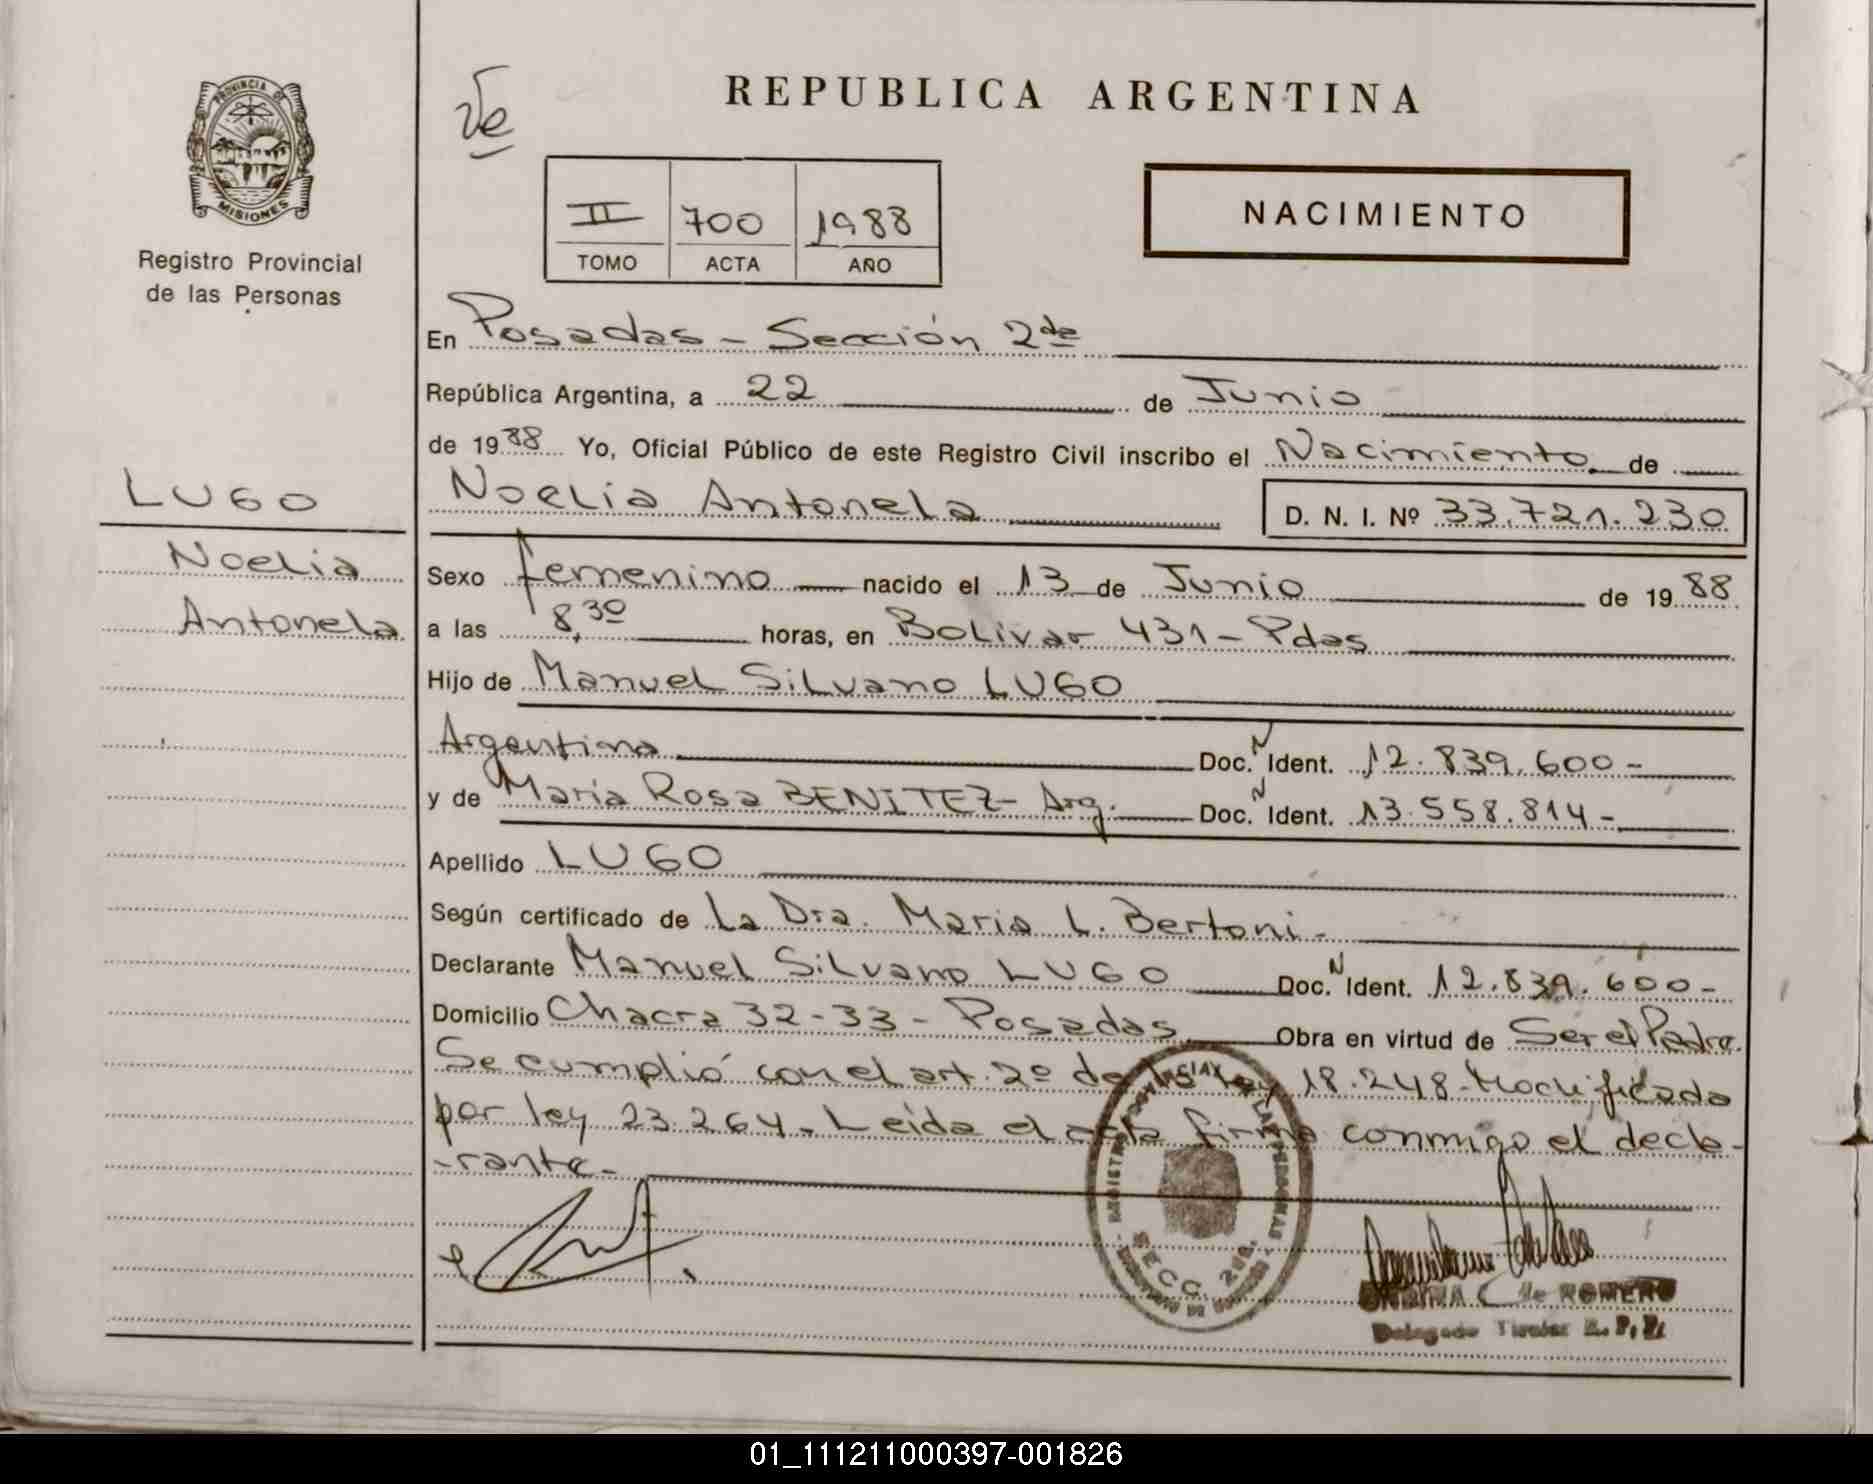 PROVINCIA DE
MISIONES
Registro Provincial
de las Personas
REPUBLICA ARGENTINA
NACIMIENTO
II 700 1988
TOMO ACTA AÑO
En Posadas - Sección 2da
República Argentina, a 22 de Junio
de 1988 Yo, Oficial Público de este Registro Civil inscribo el Nacimiento de
LUGO
Noelia Antonela D. N. I. Nº 33.721.230
Noelia
Antonela
Sexo femenino nacido el 13 de Junio de 1988
a las 8,30 horas, en Bolivar 431 - Pdas
Hijo de Manuel Silvano LUGO
Argentina Doc. N Ident. 12.839.600-
y de María Rosa BENITEZ - Arg. Doc. N Ident. 13.558.814-
Apellido LUGO
Según certificado de La Dra. Maria L. Bertoni-
Declarante Manuel Silvano LUGO Doc. N Ident. 12.839.600-
Domicilio Chacra 32-33 - Posadas Obra en virtud de Ser el Padre.
Se cumplió con el art. 2º de la ley 18.248 - Modificada
por ley 23.264 - Leída el acta firma conmigo el decla-
-rante-
SECC. 2da.
C. de ROMERO
Delegado Titular R. P. P.
01_111211000397-001826